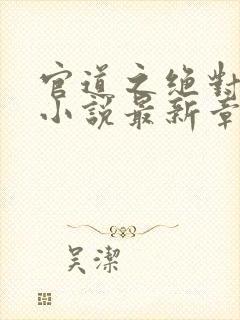 官道之绝對
小說最新章
吴潔